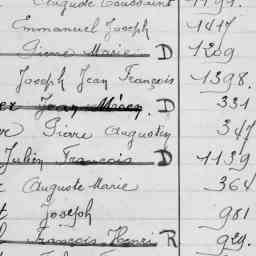 Auguste Toussaint 1191.
Emmanuel Joseph 1417
Pierre Marie D 1209
Joseph Jean François 1398.
Jean D 331
Pierre Augustin 347
Julien François D 1139
Auguste Marie 364
Joseph 981
François Henri R 929.